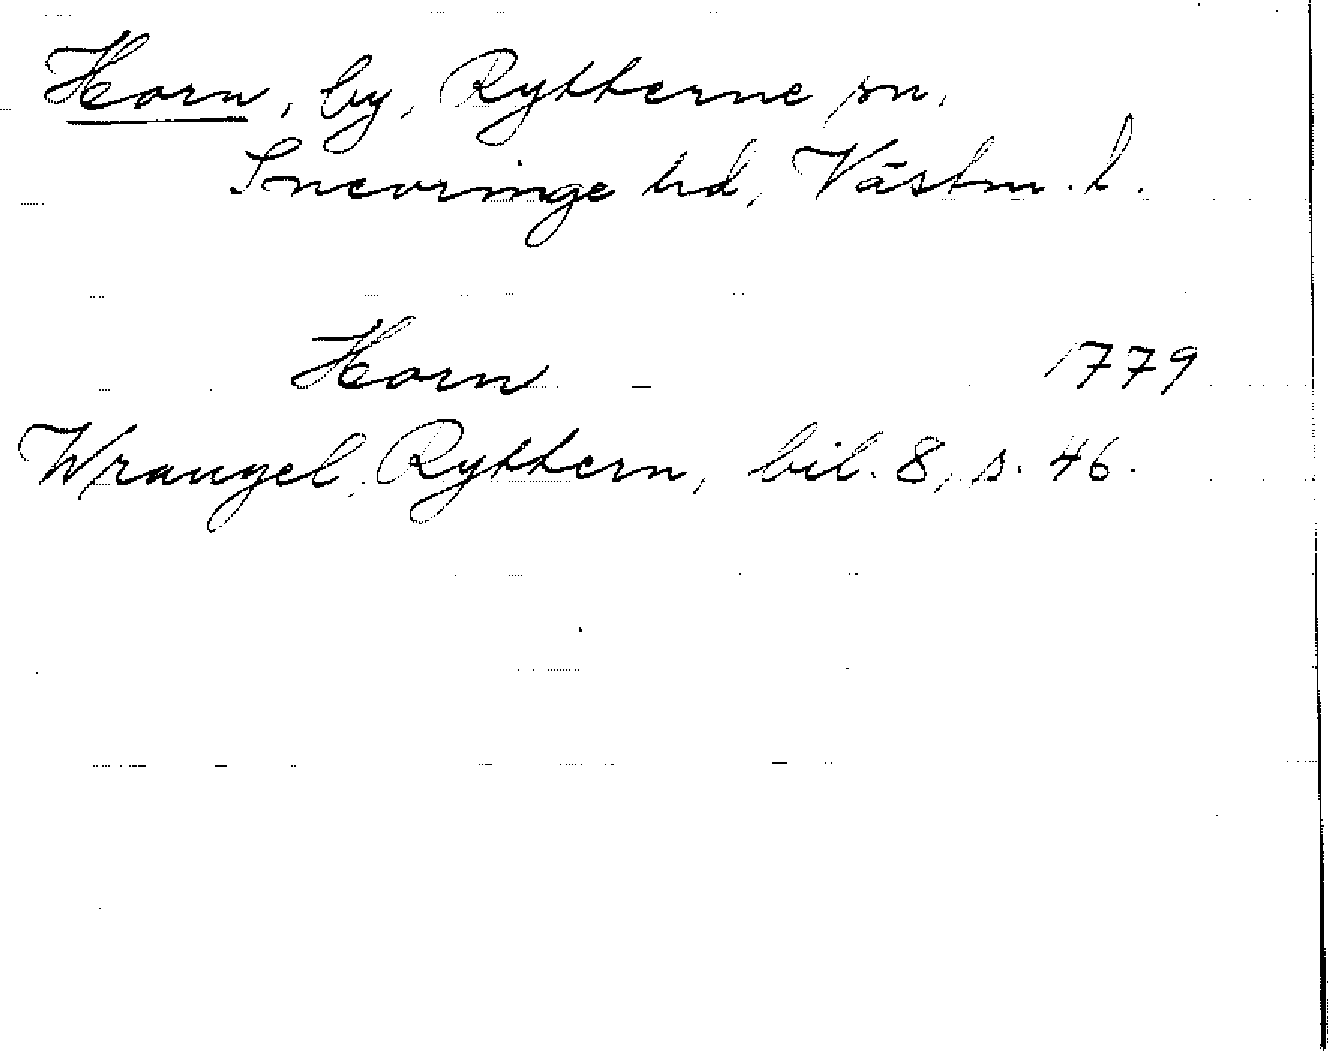 Horn, by, Rytterne sn.
Snevringe hd, Västm. l.
Horn 1779
Wrangel, Ryttern, bil. 8, s. 46.